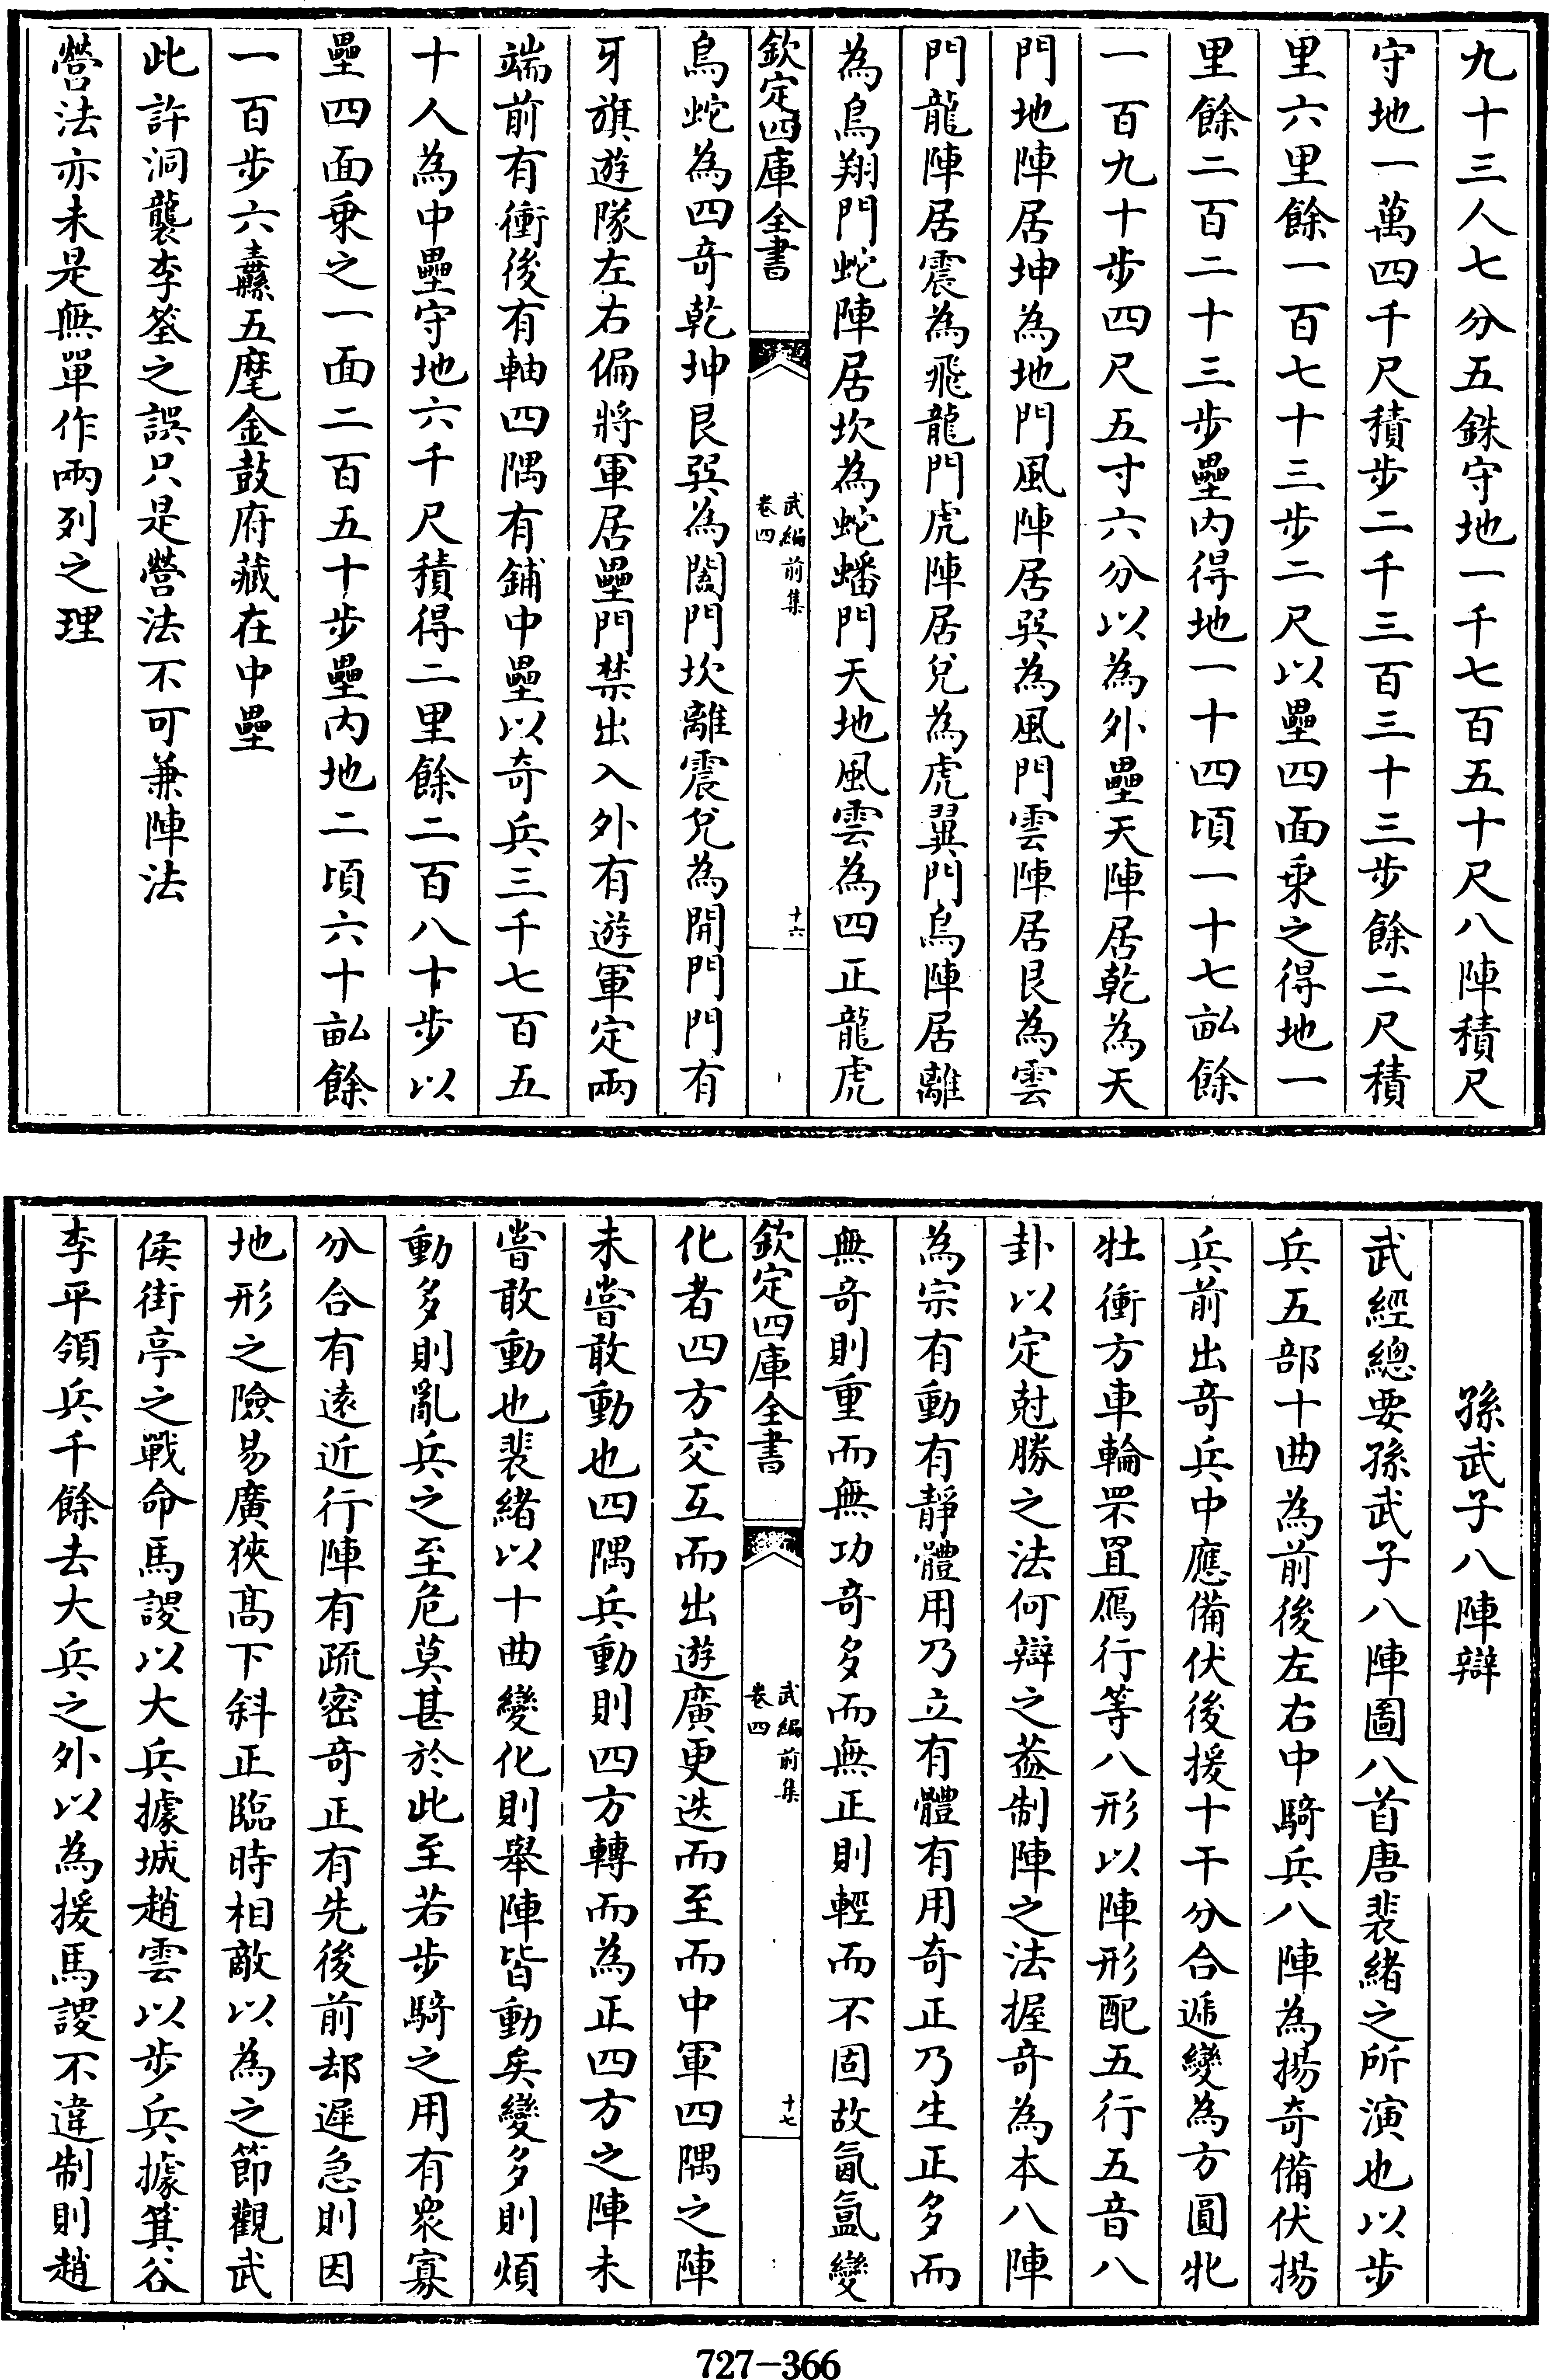 九十三人七分五銖守地一千七百五十尺八陣積尺
守地一萬四千尺積步二千三百三十三步餘二尺積
里六里餘一百七十三步二尺以壘四面乘之得地一
里餘二百二十三步壘内得地一十四頃一十七畝餘
一百九十步四尺五寸六分以為外壘天陣居乾為天
門地陣居坤為地門風陣居巽為風門雲陣居艮為雲
門龍陣居震為飛龍門虎陣居兌為虎翼門鳥陣居離
為鳥翔門蛇陣居坎為蛇蟠門天地風雲為四正龍虎
欽定四庫全書
武編前集
卷四
十六
鳥蛇為四奇乾坤艮巽為闔門坎離震兌為開門門有
牙旗遊隊左右偏將軍居壘門禁出入外有遊軍定兩
端前有衝後有軸四隅有鋪中壘以奇兵三千七百五
十人為中壘守地六千尺積得二里餘二百八十步以
壘四面乘之一面二百五十步壘内地二頃六十畝餘
一百步六纛五麾金鼓府藏在中壘
此許洞襲李筌之誤只是營法不可兼陣法
營法亦未是無單作兩列之理
孫武子八陣辯
武經總要孫武子八陣圖八首唐裴緒之所演也以步
兵五部十曲為前後左右中騎兵八陣為揚奇備伏揚
兵前出奇兵中應備伏後援十干分合遞變為方圓牝
牡衝方車輪罘罝鴈行等八形以陣形配五行五音八
卦以定尅勝之法何辯之葢制陣之法握奇為本八陣
為宗有動有靜體用乃立有體有用奇正乃生正多而
無奇則重而無功奇多而無正則輕而不固故氤氳變
欽定四庫全書
武編前集
卷四
十七
化者四方交互而出遊廣更迭而至而中軍四隅之陣
未嘗敢動也四隅兵動則四方轉而為正四方之陣未
嘗敢動也裴緒以十曲變化則舉陣皆動矣變多則煩
動多則亂兵之至危莫甚於此至若步騎之用有衆寡
分合有遠近行陣有疏密奇正有先後前却遲急則因
地形之險易廣狹髙下斜正臨時相敵以為之節觀武
侯街亭之戰命馬謖以大兵據城趙雲以步兵據箕谷
李平領兵千餘去大兵之外以為援馬謖不違制則趙
727-366